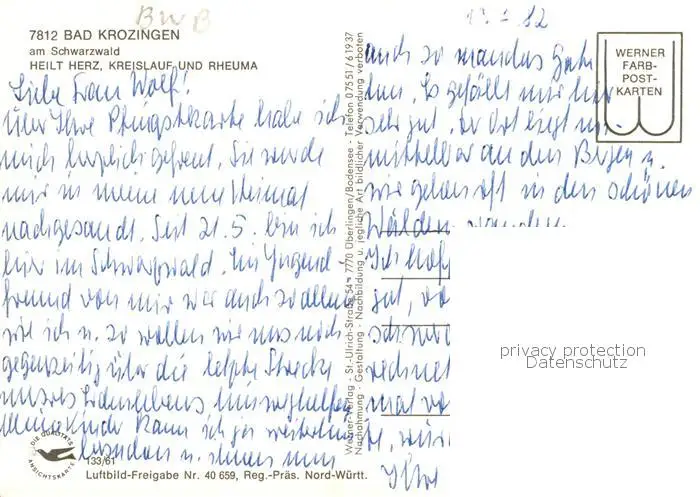 BWB
7812 BAD KROZINGEN
am Schwarzwald
HEILT HERZ, KREISLAUF UND RHEUMA
Liebe Frau Wolf!
Über Ihre Pfingstkarte habe ich
mich herzlich gefreut. Sie wurde
mir in meine neue Heimat
nachgesandt. Seit 21.5. bin ich
hier im Schwarzwald. Ein Jugend-
freund von mir war auch so allein
wie ich u. so wollen wir uns noch
gegenseitig über die letzte Strecke
unseres hinweghelfen.
kann ich ja weiterhin
u. ihnen nun
133/61
Luftbild-Freigabe Nr. 40 659, Reg.-Präs. Nord-Württ.
DIE QUALITÄTS
ANSICHTSKARTE
Werner-Verlag - St.-Ulrich-Straße 54 - 7770 Überlingen/Bodensee - Telefon 0 75 51 / 6 19 37
Nachahmung - Gestaltung - Nachbildung u. jegliche Art bildlicher Verwendung verboten
82
auch so manches Gute
tun. Es gefällt mir hier
sehr gut. Der Ort liegt un-
mittelbar an den Bergen u.
wie gehen oft in den schönen
Wäldern wandern
Ich hoffe
gut,
rechnet
mal
Ihre
WERNER
FARB-
POST-
KARTEN
privacy protection
Datenschutz